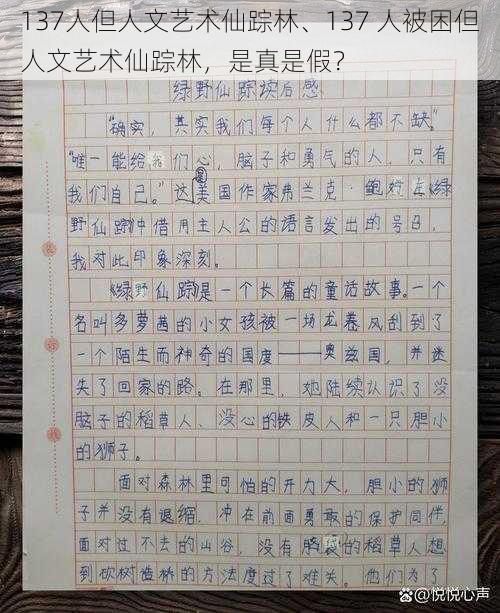 137人但人文艺术仙踪林、137 人被困但
人文艺术仙踪林，是真是假？
绿野仙踪读后感
“确实，其实我们每个人什么都不缺。”
“唯一能给我们心，脑子和勇气的人，只有
我们自己。”这美国作家弗兰克·鲍姆在《绿
野仙踪》中借用主人公的语言发出的号召，
我对此印象深刻。
《绿野仙踪》是一个长篇的童话故事。一个
名叫多萝茜的小女孩被一场龙卷风刮到了
一个陌生而神奇的国度——奥兹国，并迷
失了回家的路。在那里，她陆续认识了没
脑子的稻草人、没心的铁皮人和一只胆小
的狮子。
面对森林里可怕的开力大，胆小的狮
子并没有退缩，冲在前面勇敢的保护同伴，
面对过不去的山谷，没有脑袋的稻草人想
到砍树造桥的方法度过了难关。他们为了
@悦悦心声